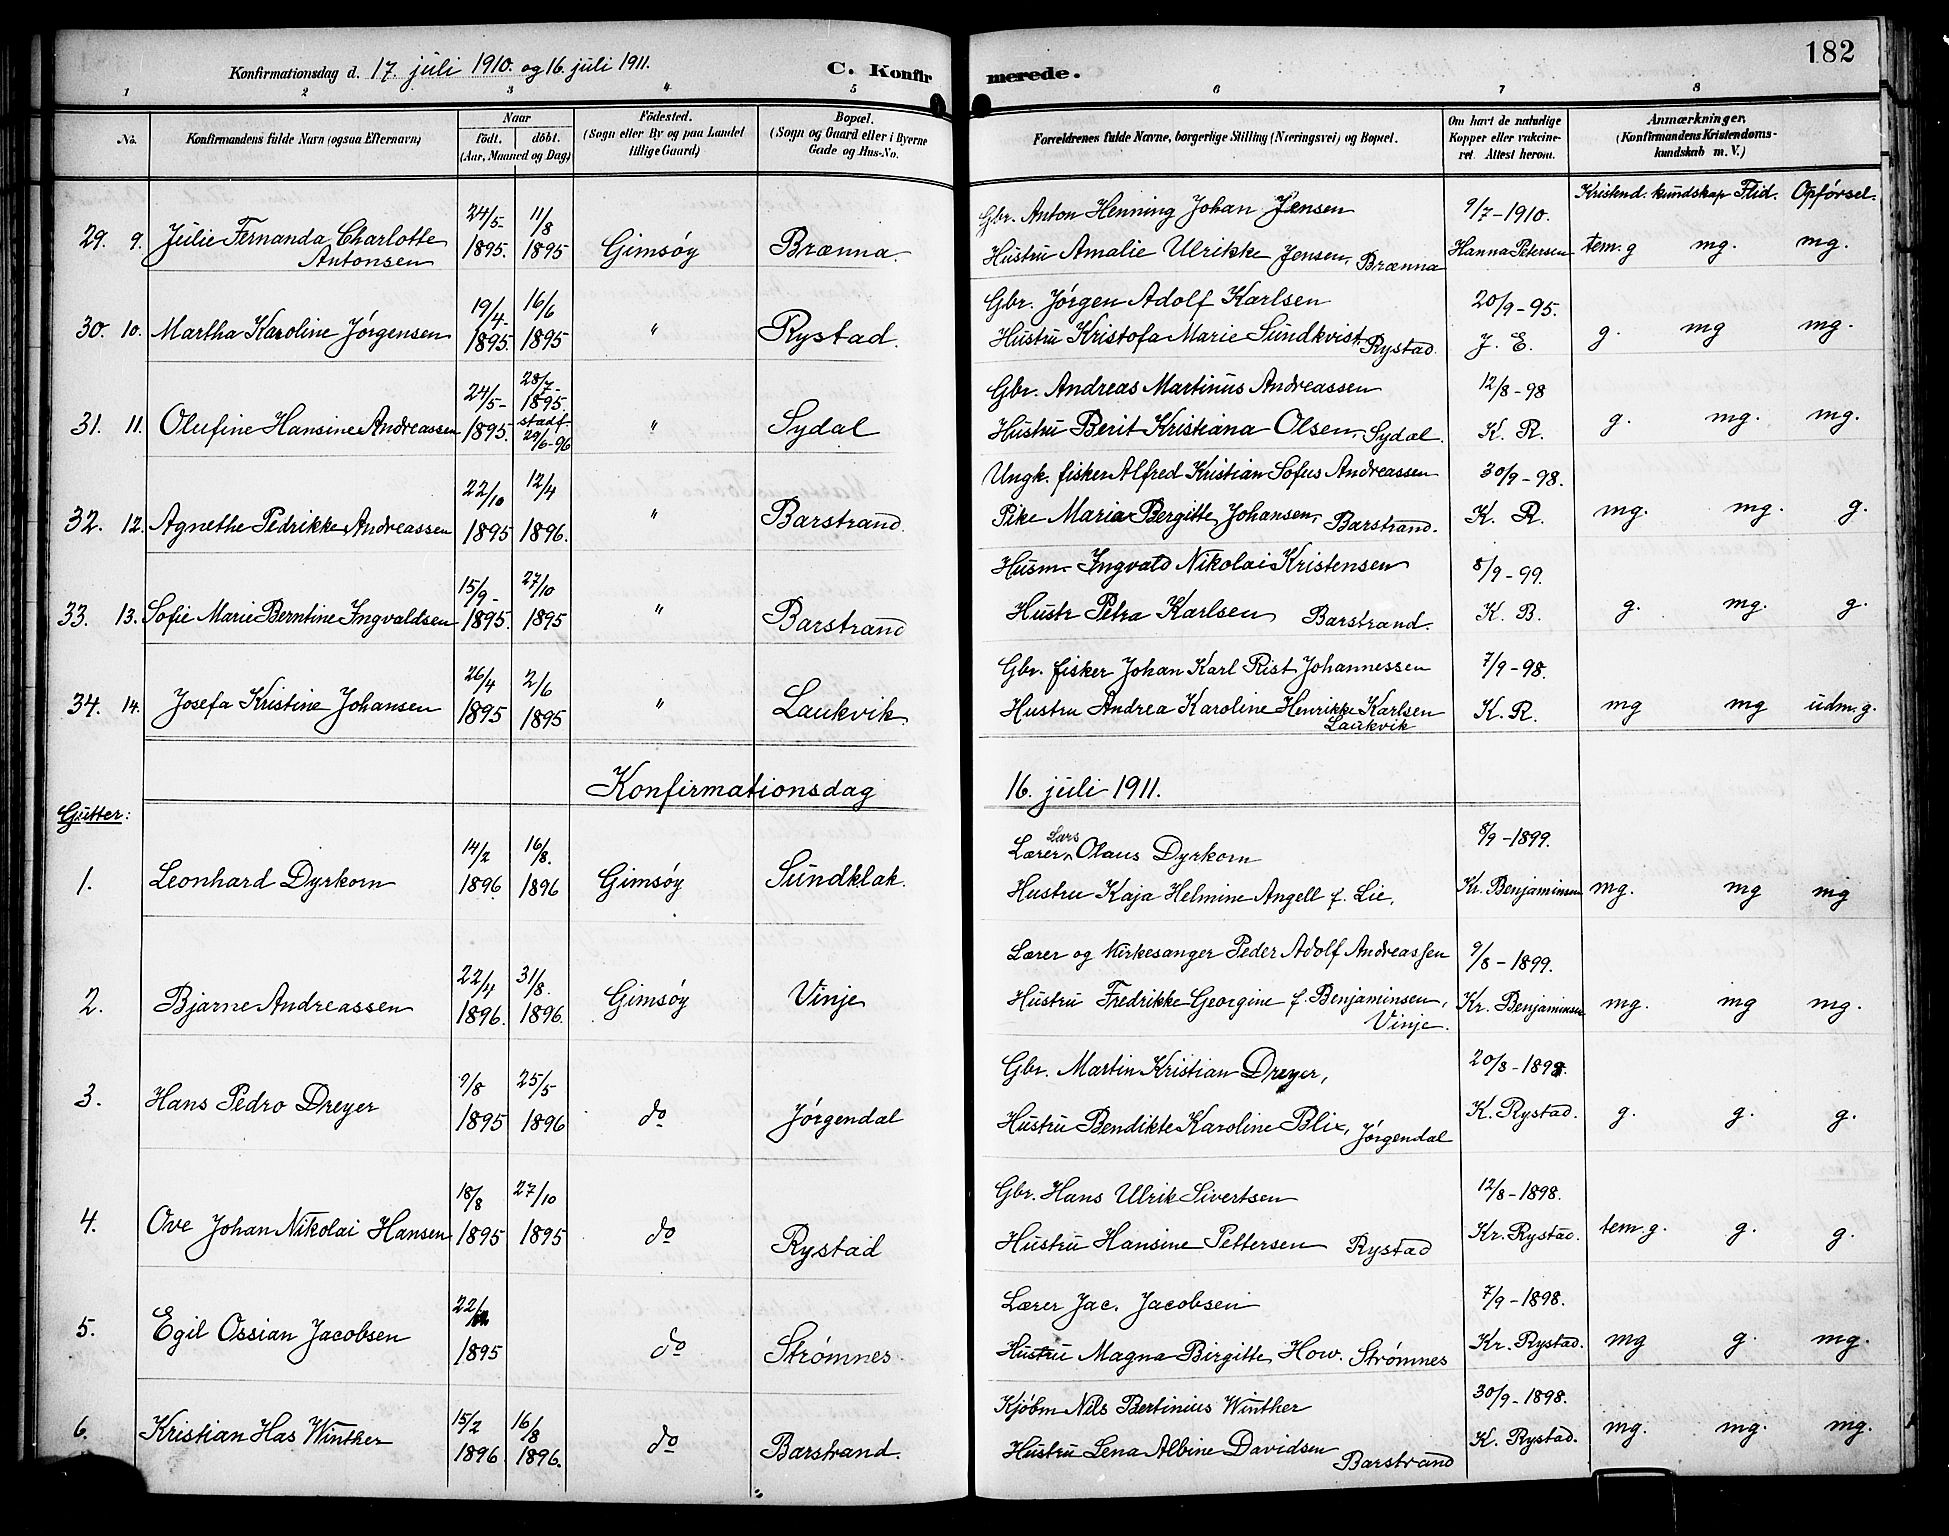 182
Konfirmationsdag d. 17. juli 1910. og 16. juli 1911.
C. Konfirmerede.
1 2 3 4 5 6 7 8
No. Konfirmandens fulde Navn (ogsaa Efternavn) Naar født. døbt. (Aar, Maaned og Dag) Fødested. (Sogn eller By og paa Landet tillige Gaard.) Bopæl. (Sogn og Gaard eller i Byerne Gade og Hus-No. Forældrenes fulde Navne, borgerlige Stilling (Næringsvei) og Bopæl. Om havt de naturlige Kopper eller vakcineret. Attest herom. Anmærkninger. (Konfirmandens Kristendomskundskab m. V.)
Kristend. kundskap Flid. Opførsel.
29. 9. Julie Fernanda Charlotte Antonsen 24/5- 1895. 11/8 1895 Gimsøy Brænna. Gbr. Anton Henning Johan Jensen 9/7-1910.
Hustru Amalie Ulrikke Jensen, Brænna Hanna Petersen tem. g mg. mg.
30. 10. Martha Karoline Jørgensen 19/4- 1895. 16/6 1895 " Rystad. Gbr. Jørgen Adolf Karlsen 20/9-95.
Hustru Kristofa Marie Sundkvist. Rystad. J. E. g. mg mg.
31. 11. Olufine Hansine Andreassen 24/5- 1895. 28/7- 1895. stadf 29/6-96 " Sydal Gbr. Andreas Martinus Andreassen 12/8-98
Hustru Berit Kristiana Olsen, Sydal. K. R. g. mg. mg.
32. 12. Agnethe Pedrikke Andreassen 22/10 1895 12/4 1896. " Barstrand. Ungk. fisker Alfred Kristian Sofus Andreassen 30/9-98.
Pike Maria Bergitte Johansen, Barstrand. K. R. mg. mg. g.
33. 13. Sofie Marie Berntine Ingvaldsen 15/9- 1895. 27/10 1895 " Barstrand Husm. Ingvald Nikolai Kristensen 8/9-99.
Hustr Petra Karlsen Barstrand. K. B. g. mg. g.
34. 14. Josefa Kristine Johansen 26/4 1895 2/6 1895 " Laukvik. Gbr. fisker Johan Karl Rist Johannessen 7/9-98.
Hustru Andrea Karoline Henrikke Karlsen Laukvik K. R. mg mg udm. g.
Konfirmationsdag 16. juli 1911.
Gutter:
1. Leonhard Dyrkorn 14/2 1896. 16/8. 1896 Gimsøy Sundklak. Lærer Lars Olaus Dyrkorn 8/9-1899.
Hustru Kaja Helmine Angell f. Lie, Kr. Benjaminsen mg. mg mg
2. Bjarne Andreassen 22/4 1896. 31/8. 1896. Gimsøy Vinje Lærer og Kirkesanger Peder Adolf Andreassen 9/8-1899.
Hustru Fredrikke Georgine f. Benjaminsen, Vinje. Kr. Benjaminsen mg. mg mg.
3. Hans Pedro Dreyer 9/8 1895 25/5 1896 do Jørgendal Gbr. Martin Kristian Dreyer, 20/8-1898.
Hustru Bendikte Karoline Blix, Jørgendal K. Rystad. g. g. g.
4. Ove Johan Nikolai Hansen 18/8 1895 27/10 1895 do Rystad Gbr. Hans Ulrik Sivertsen 12/8-1898.
Hustru Hansine Pettersen Rystad Kr. Rystad. tem. g. g. g.
5. Egil Ossian Jacobsen 22/ 1895 do Strømnes. Lærer Jac. Jacobsen 7/9-1898.
Hustru Magna Birgitte How. Strømnes Kr. Rystad. mg g. mg.
6. Kristian Has Winther 15/2 1896 16/8 1896. do Barstrand. Kjøbm Nils Bertinius Winther 30/9-1898.
Hustru Lena Albine Davidsen Barstrand K. Rystad. mg. mg. mg.